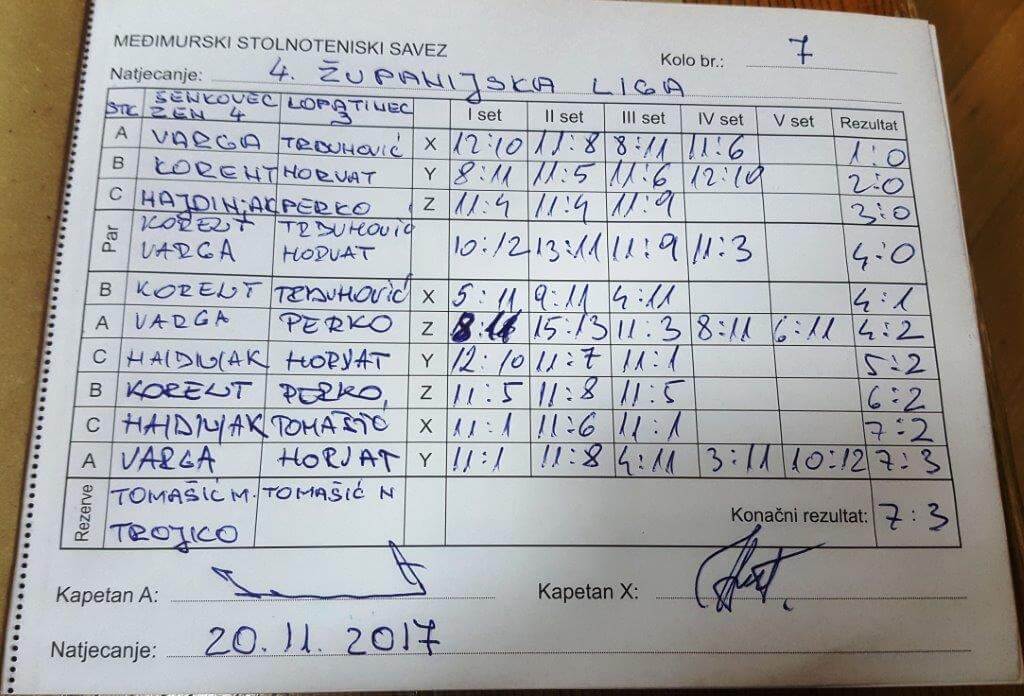 MEĐIMURSKI STOLNOTENISKI SAVEZ
Kolo br.: 7
Natjecanje: 4. ŽUPANIJSKA LIGA
STK ŠENKOVEC ŽEN 4 LOPATINEC 3 I set II set III set IV set V set Rezultat
A VARGA TRDUHOVIĆ X 12:10 11:8 8:11 11:6 1:0
B KORENT HORVAT Y 8:11 11:5 11:6 12:10 2:0
C HAJDINJAK PERKO Z 11:4 11:4 11:9 3:0
Par KORENT TRDUHOVIĆ
VARGA HORVAT 10:12 13:11 11:9 11:3 4:0
B KORENT TRDUHOVIĆ X 5:11 9:11 4:11 4:1
A VARGA PERKO Z 8:11 15:13 11:3 8:11 6:11 4:2
C HAIDINJAK HORVAT Y 12:10 11:7 11:1 5:2
B KORENT PERKO Z 11:5 11:8 11:5 6:2
C HAIDINJAK TOMAŠIĆ X 11:1 11:6 11:1 7:2
A VARGA HORVAT Y 11:1 11:8 4:11 3:11 10:12 7:3
Rezerve TOMAŠIĆ M. TOMAŠIĆ N
TROJKO Konačni rezultat: 7:3
Kapetan A: Kapetan X:
Natjecanje: 20.11.2017